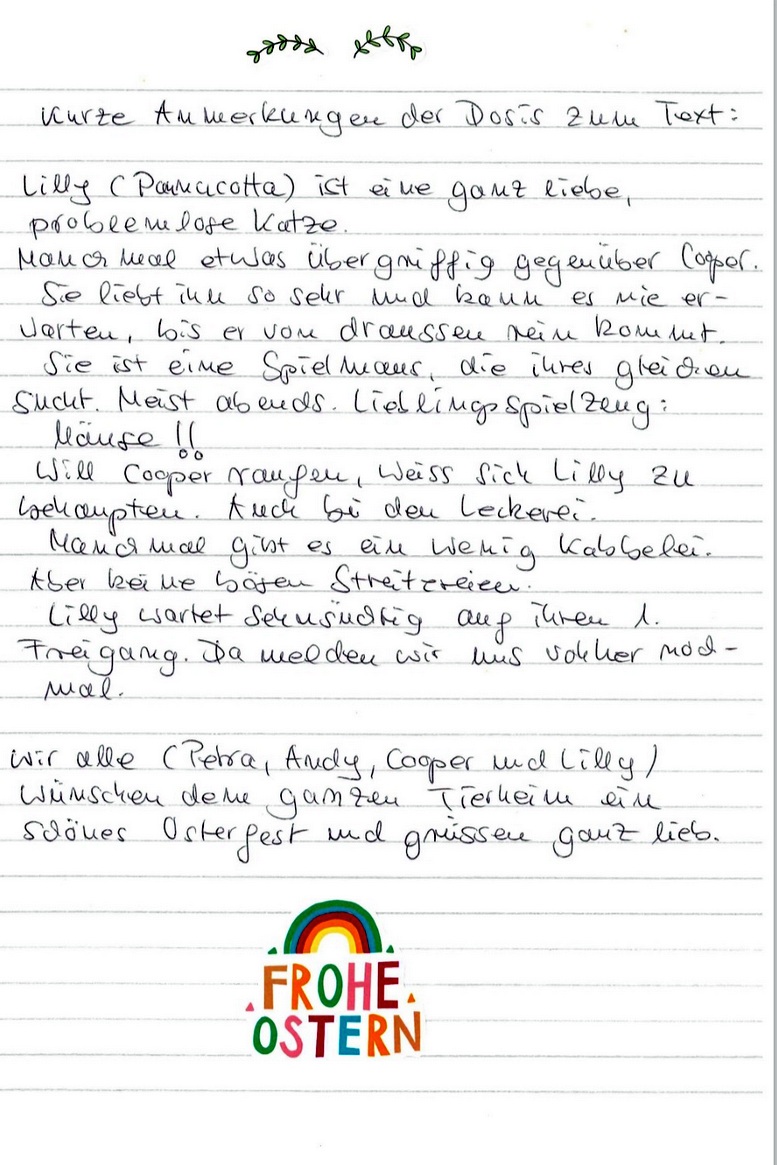 Kurze Anmerkungen der Dosis zum Text:
Lilly (Pannacotta) ist eine ganz liebe,
problemlose Katze.
Manchmal etwas übergriffig gegenüber Cooper.
Sie liebt ihn so sehr und kann es nie er-
warten, bis er von draussen rein kommt.
Sie ist eine Spielmaus, die ihres gleichen
sucht. Meist abends. Lieblingsspielzeug:
Mäuse!!
Will Cooper raufen, weiss sich Lilly zu
behaupten. Auch bei den Leckerei.
Manchmal gibt es ein wenig Kabbelei.
Aber keine bösen Streitereien.
Lilly wartet sehnsüchtig auf ihren 1.
Freigang. Da melden wir uns vorher noch-
mal.
Wir alle (Petra, Andy, Cooper und Lilly)
wünschen dem ganzen Tierheim ein
schönes Osterfest und grüssen ganz lieb.
FROHE
OSTERN